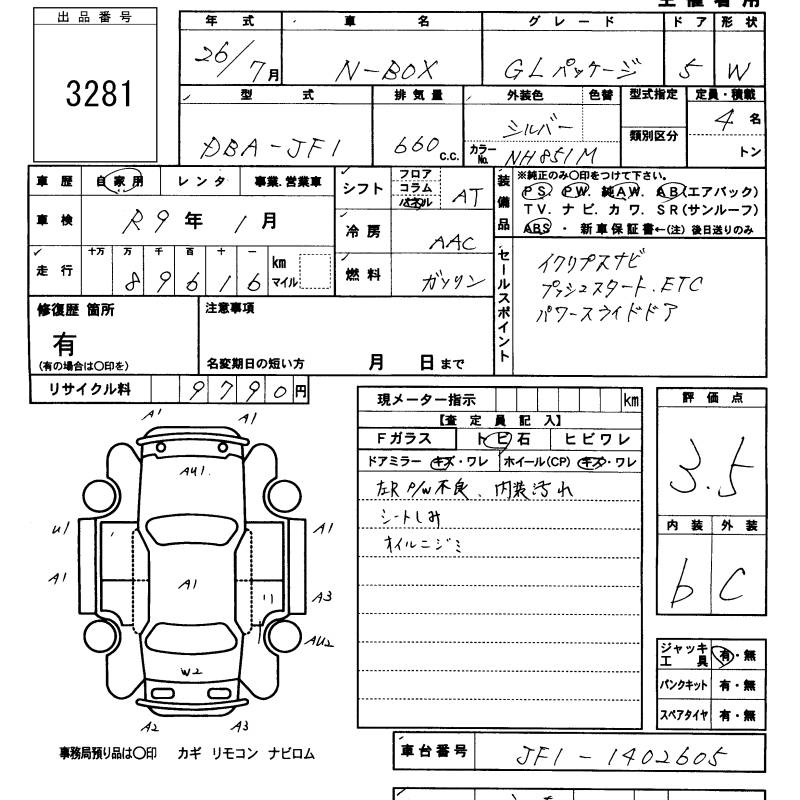 出品番号
3281
年式 車名 グレード ドア 形状
26/7月 N-BOX GLパッケージ 5 W
型式 排気量 外装色 色替 型式指定 定員・積載
DBA-JF1 660 c.c. シルバー 類別区分 4名
カラーNo. NH851M トン
車歴 自家用 レンタ 事業.営業車
シフト フロア コラム パネル AT
車検 R9年1月
冷房 AAC
走行 十万 万 千 百 十 一 km マイル
89616
燃料 ガソリン
装備品 ※純正のみ〇印をつけて下さい。
PS. PW. 純AW. AB(エアバック)
TV. ナビ. カワ. SR(サンルーフ)
ABS ・ 新車保証書←(注) 後日送りのみ
セールスポイント
イクリプスナビ
プッシュスタート.ETC
パワースライドドア
修復歴 箇所
有
(有の場合は〇印を)
注意事項
名変期日の短い方 月 日まで
リサイクル料 9790円
現メーター指示 km
【査定員記入】
Fガラス トビ石 ヒビワレ
ドアミラー キズ・ワレ ホイール(CP) キズ・ワレ
左R P/W不良、内装汚れ
シートしみ
オイルニジミ
評価点
3.5
内装 外装
b C
A1 A1
AU1
U1 A1
A1 A1 A3
AU2
W2
A2 A3
ジャッキ工具 有・無
パンクキット 有・無
スペアタイヤ 有・無
事務局預り品は〇印 カギ リモコン ナビロム
車台番号 JF1-1402605